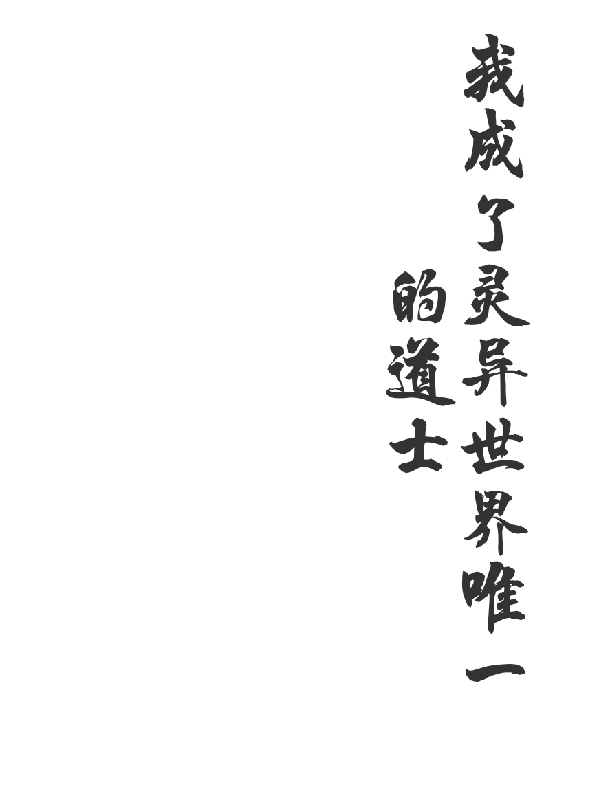 我成了灵异世界唯一
的道士